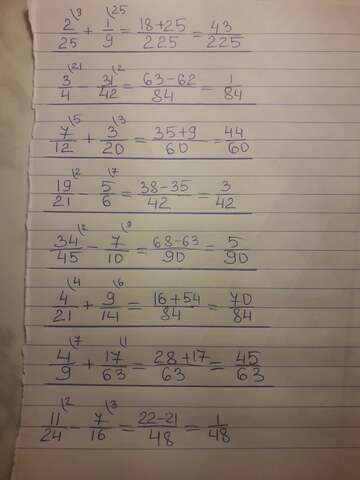 2/25 \9 + 1/9 \25 = 18+25/225 = 43/225
3/4 \21 - 31/42 \2 = 63-62/84 = 1/84
7/12 \5 + 3/20 \3 = 35+9/60 = 44/60
19/21 \2 - 5/6 \7 = 38-35/42 = 3/42
34/45 \2 - 7/10 \9 = 68-63/90 = 5/90
4/21 \4 + 9/14 \6 = 16+54/84 = 70/84
4/9 \7 + 17/63 \1 = 28+17/63 = 45/63
11/24 \2 - 7/16 \3 = 22-21/48 = 1/48